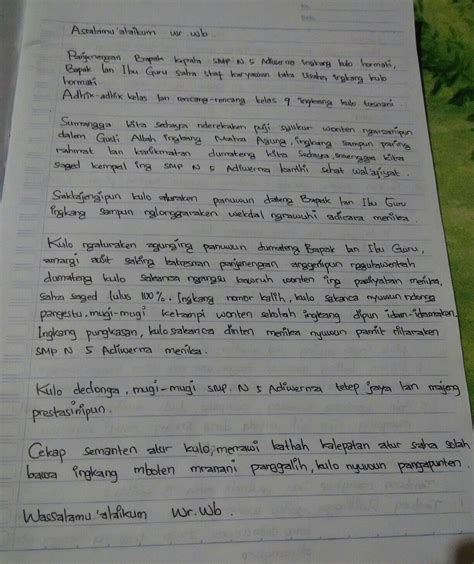 Assalamu'alaikum wr.wb.
Panjenengan Bapak kepala SMP N 5 Adiwerna ingkang kulo hormati,
Bapak lan Ibu Guru saha staf karyawan tata Usaha ingkang kulo
hormati
Adhik-adhik kelas lan rencang-rencang kelas 9 ingkang kulo tresnani.
Sumangga kita sedaya nderekaken puji syukur wonten ngarsanipun
dalem Gusti Allah ingkang Maha Agung, ingkang sampun paring
rahmat lan kanikmatan dumateng kita sedaya, saengga kita
saged kempel ing SMP N 5 Adiwerna kanthi sehat wal'afiyat.
Saklajengipun kulo aturaken panuwun dateng Bapak lan Ibu Guru
ingkang sampun nglonggraraken wekdal ngrawuhi adicara menika.
Kulo ngaturaken agunging panuwun dumateng Bapak lan Ibu Guru,
amargi saking katresnan panjenengan anggenipun
dumateng kulo sakanca ngangsu kawruh wonten ing menika,
saha saged lulus 100%. Ingkang nomor kalih, kulo sakanca nyuwun ndonga
pangestu, mugi-mugi ketampi wonten sekolah ingkang dipun idam-idamaken.
Ingkang pungkasan, kulo sakanca dinten menika nyuwun pamit nilaraken
SMP N 5 Adiwerna menika.
Kulo dedonga, mugi-mugi SMP N 5 Adiwerna tetep jaya lan majeng
prestasinipun.
Cekap semanten atur kulo, menawi kathah kalepatan atur saha solah
bawa ingkang mboten mranani panggalih, kulo nyuwun pangapunten.
Wassalamu'alaikum Wr.Wb.